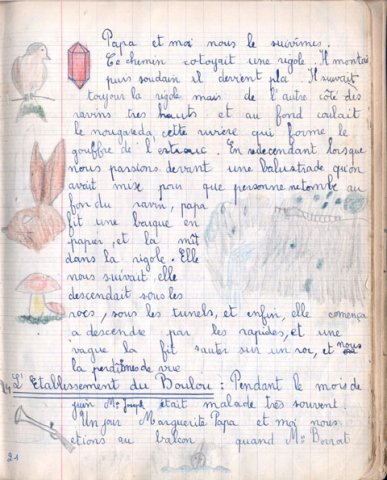 Papa et moi nous le suivîmes.
Ce chemin cotoyait une rigole. Il montait
puis soudain il devient pla. Il suivait
toujour la rigole mais de l'autre côté des
ravins tres hauts et au fond coulait
le nougareda, cette riviere qui forme le
gouffre de l'estrauc. En redecendant lorsque
nous passions devant une balustrade qu'on
avait mise pour que personne ne tombe au
fon du ravin, papa
fit une barque en
papier, et la mit
dans la rigole. Elle
nous suivait, elle
descendait sous les
rocs, sous les tunels, et enfin, elle comença
a descendre par les rapides, et une
vague la fit sauter sur un roc, et nous
la perdîmes de vue
L'Etablissement du Boulou : Pendant le mois de
juin Mr Joseph etait malade tres souvent.
Un jour Marguerite Papa et moi nous
etions au balcon quand Mr Borrat
21